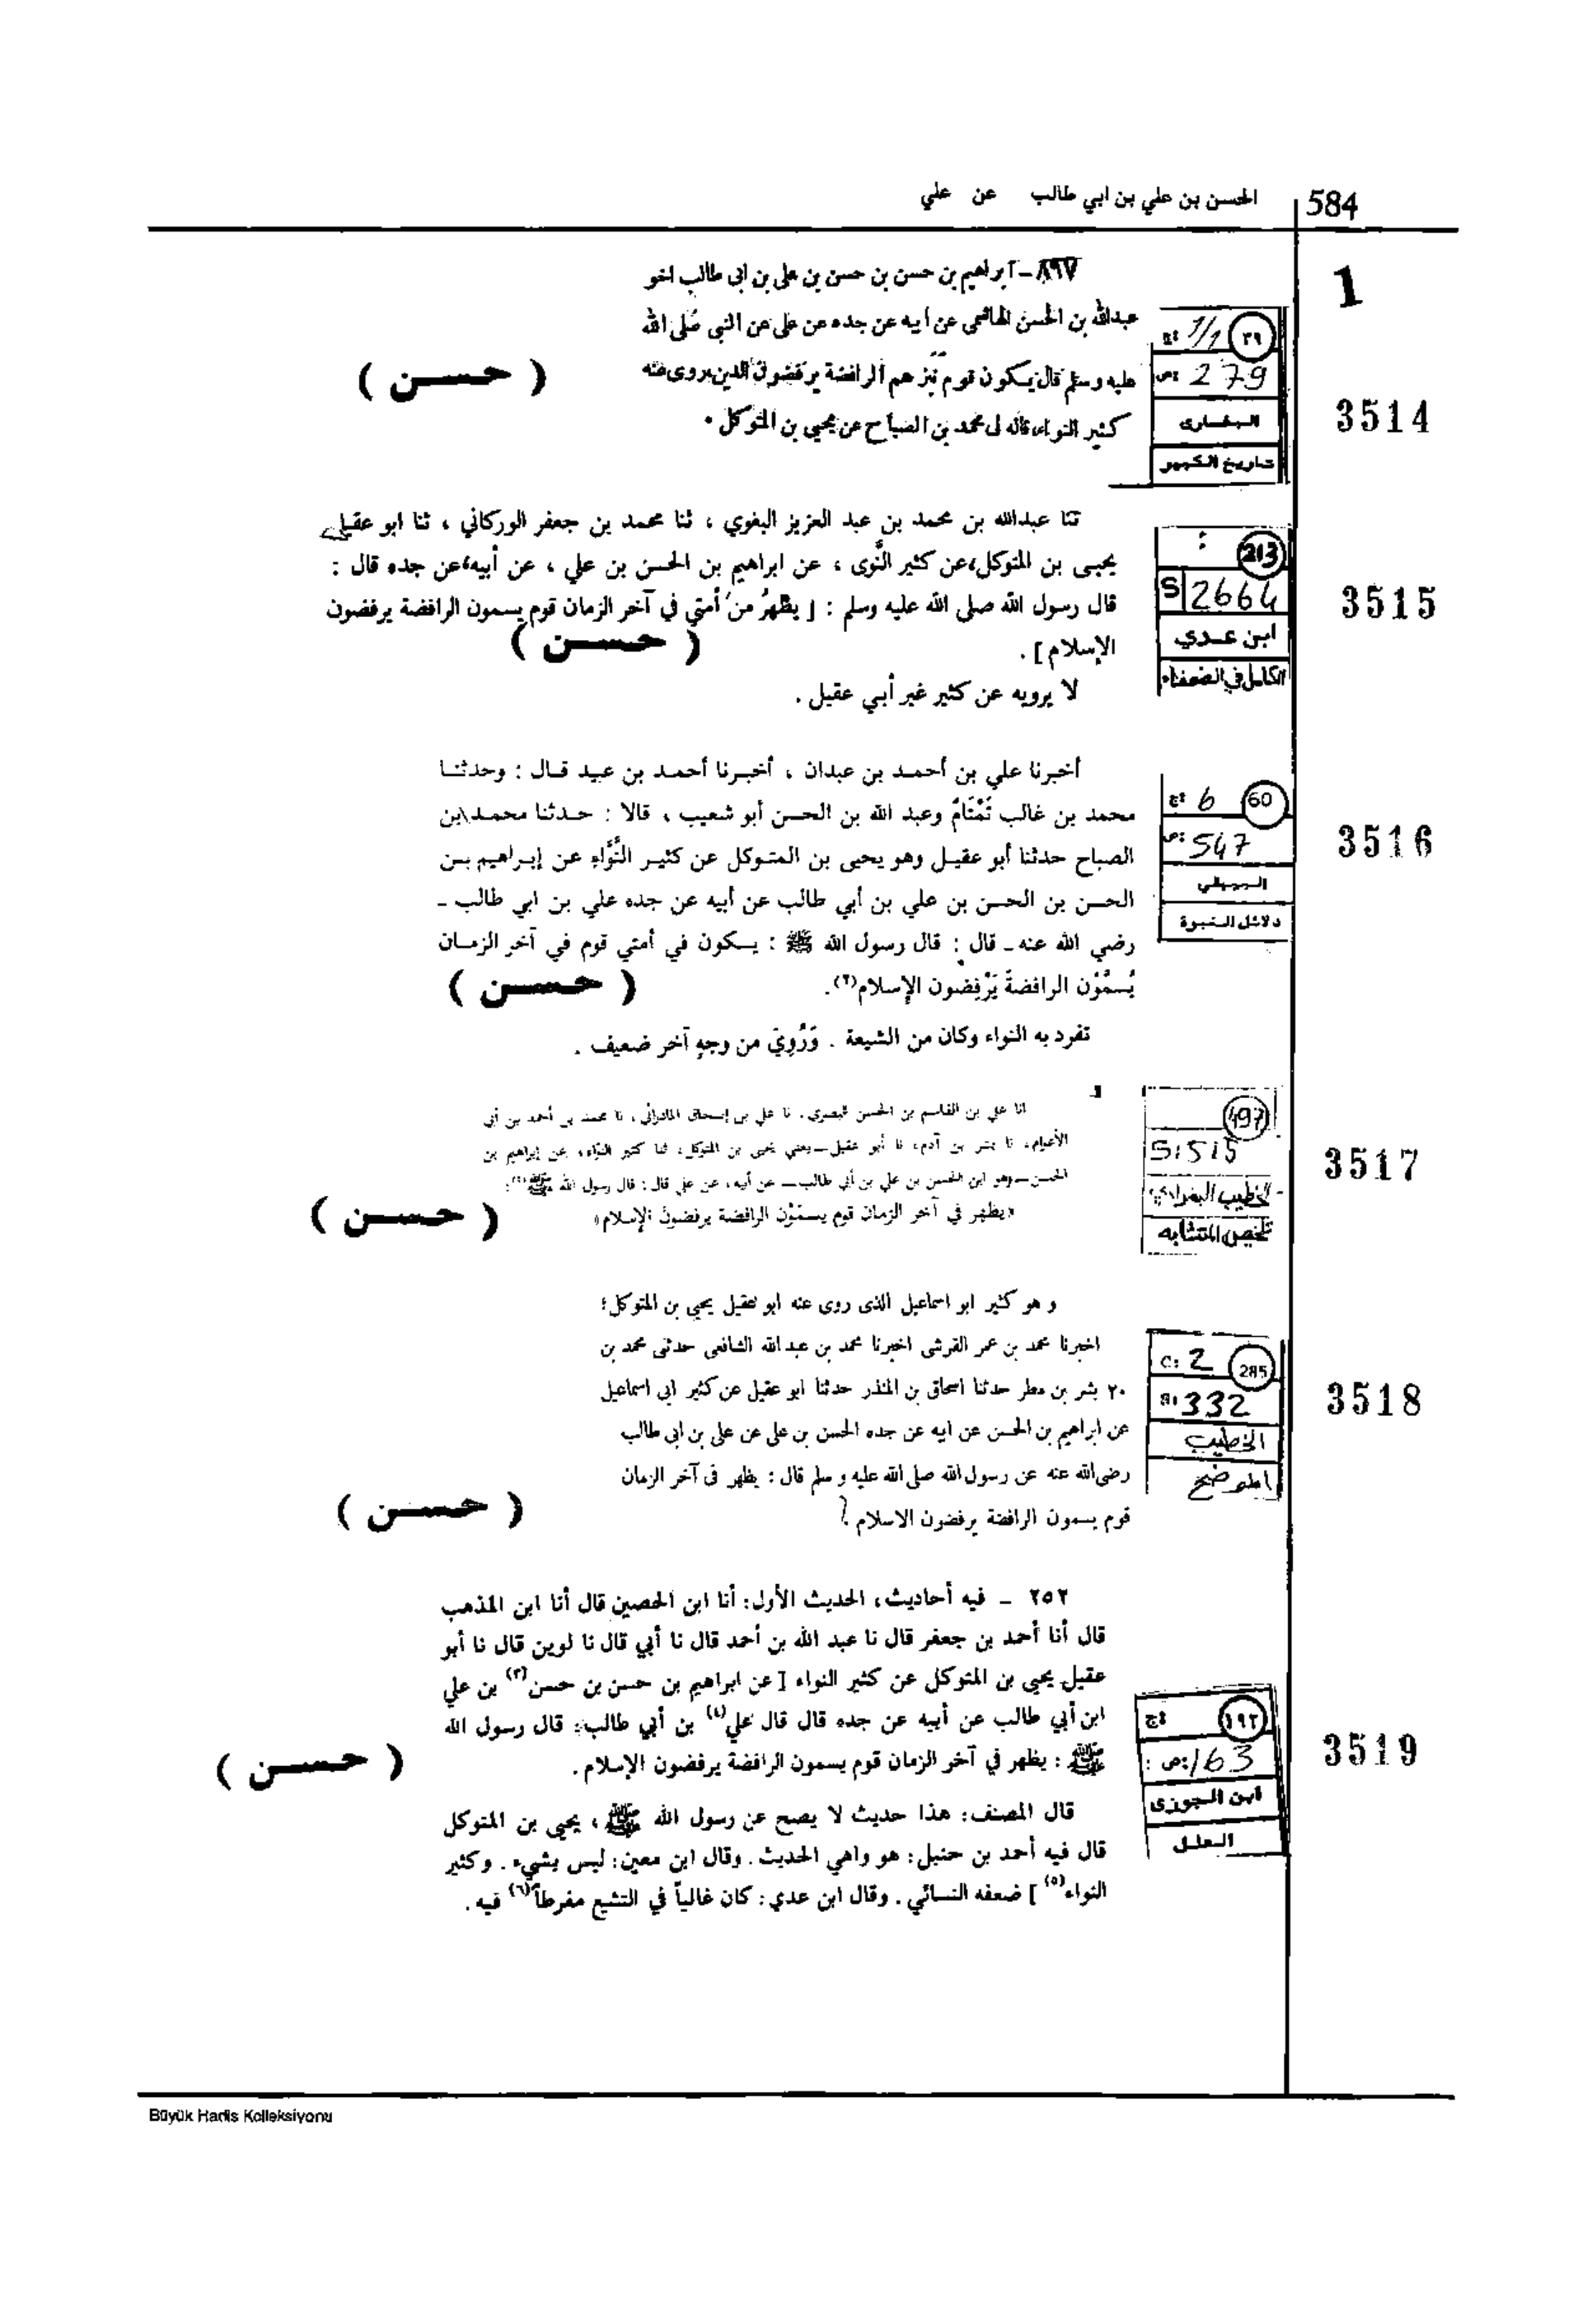 584 الحسن بن علي بن ابي طالب عن علي
1
٨٩٧ - ابراهيم بن حسن بن حسن بن على بن ابى طالب اخو
عبدالله بن الحسن الهاشمى عن ابيه عن جده عن على عن النبى صلى الله
عليه وسلم قال يكون قوم نبزهم الرافضة يرفضون الدين، روى عنه
كثير النواء، قاله لى محمد بن الصباح عن يحيى بن المتوكل .
( حسن )
٣٩ ج: 1/1
ص: 279
البخارى
تاريخ الكبير
3514
ثنا عبدالله بن محمد بن عبد العزيز البغوي ، ثنا محمد بن جعفر الوركاني ، ثنا ابو عقيل
يحيى بن المتوكل، عن كثير النَّوى ، عن ابراهيم بن الحسن بن علي ، عن أبيه، عن جده قال :
قال رسول الله صلى الله عليه وسلم : [ يظهرُ من أمتي في آخر الزمان قوم يسمون الرافضة يرفضون
الإسلام ] .
( حسن )
لا يرويه عن كثير غير أبي عقيل .
213 :
S 2664
ابن عدي
الكامل في الضعفاء
3515
أخبرنا علي بن أحمد بن عبدان ، أخبرنا أحمد بن عبيد قال : وحدثنا
محمد بن غالب تَمْتَامٌ وعبد الله بن الحسن أبو شعيب ، قالا : حدثنا محمد بن
الصباح حدثنا أبو عقيل وهو يحيى بن المتوكل عن كثير النَّوَّاءِ عن إبراهيم بن
الحسن بن الحسن بن علي بن أبي طالب عن أبيه عن جده علي بن ابي طالب -
رضي الله عنه - قال : قال رسول الله ﷺ : يكون في أمتي قوم في آخر الزمان
يُسمَّوْن الرافضةَ يَرْفِضُون الإسلام(٢).
( حسن )
تفرد به النواء وكان من الشيعة . وَرُوِيَ من وجهٍ آخر ضعيف .
60 ج: 6
ص: 547
البيهقي
دلائل النبوة
3516
انا علي بن القاسم بن الحسن البصري، نا علي بن إسحاق المادرائي، نا محمد بن أحمد بن أبي
الأعوام، نا بشر بن آدم، نا أبو عقيل - يعني يحيى بن المتوكل، نا كثير النواء، عن إبراهيم بن
الحسن - وهو ابن الحسن بن علي بن أبي طالب - عن أبيه، عن علي قال: قال رسول الله ﷺ:
«يظهر في آخر الزمان قوم يسمَّوْن الرافضة يرفضونَ الإسلام»
( حسن )
497
S: 515
الخطيب البغدادي
تلخيص المتشابه
3517
و هو كثير ابو اسماعيل الذى روى عنه ابو عقيل يحيى بن المتوكل؛
اخبرنا محمد بن عمر القرشى اخبرنا محمد بن عبد الله الشافعى حدثنى محمد بن
٢٠ بشر بن مطر حدثنا اسحاق بن المنذر حدثنا ابو عقيل عن كثير ابى اسماعيل
عن ابراهيم بن الحسن عن ابيه عن جده الحسن بن على عن على بن ابى طالب
رضى الله عنه عن رسول الله صلى الله عليه و سلم قال : يظهر فى آخر الزمان
قوم يسمون الرافضة يرفضون الاسلام .
( حسن )
285 C: 2
S: 332
الخطيب
الموضح
3518
٢٥٢ - فيه أحاديث، الحديث الأول: أنا ابن الحصين قال أنا ابن المذهب
قال أنا أحمد بن جعفر قال نا عبد الله بن أحمد قال نا أبي قال نا لوين قال نا أبو
عقيل يحيى بن المتوكل عن كثير النواء [ عن ابراهيم بن حسن بن حسن(٣) بن علي
ابن أبي طالب عن أبيه عن جده قال قال علي(٤) بن أبي طالب: قال رسول الله
ﷺ : يظهر في آخر الزمان قوم يسمون الرافضة يرفضون الإسلام.
( حسن )
قال المصنف: هذا حديث لا يصح عن رسول الله ﷺ، يحيى بن المتوكل
قال فيه أحمد بن حنبل: هو واهي الحديث. وقال ابن معين: ليس بشيء. وكثير
النواء(٥) ] ضعفه النسائي. وقال ابن عدي: كان غالياً في التشيع مفرطاً(٦) فيه.
١٩٢ ج:
ص: 163
ابن الجوزى
العلل
3519
Büyük Hadis Kolleksiyonu